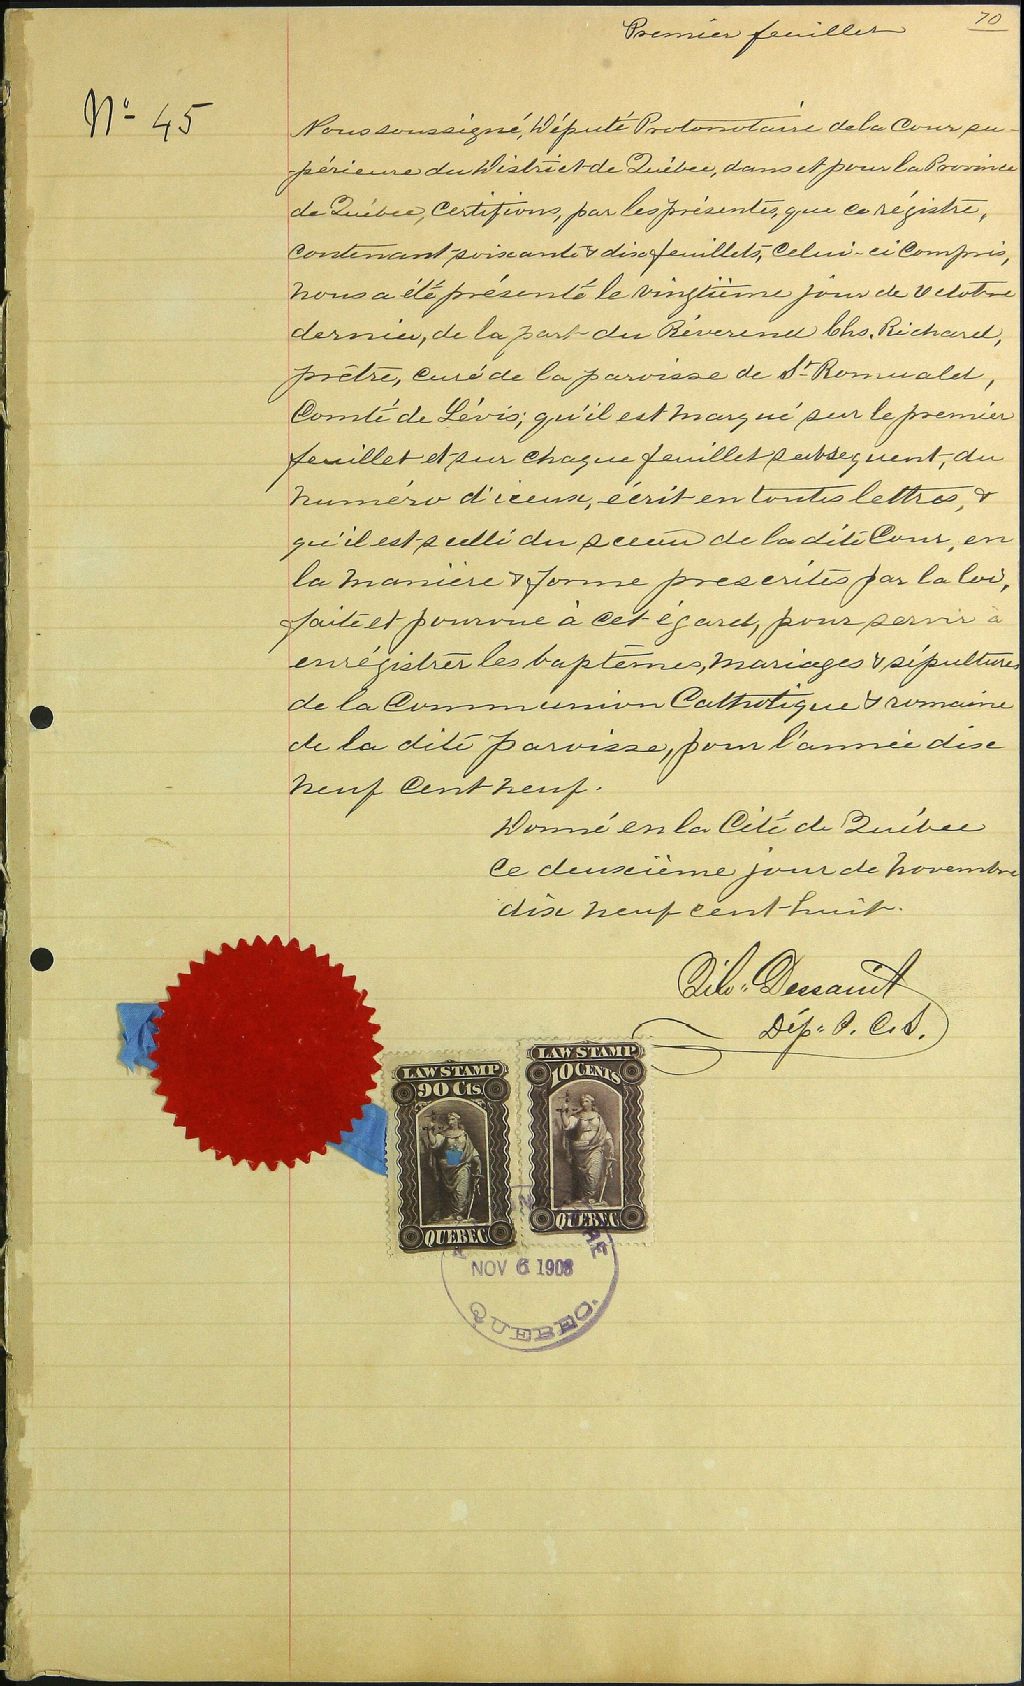 70
Premier feuillet
No 45
Nous soussigné, Député Protonotaire de la Cour su-
périeure du District de Québec, dans et pour la Province
de Québec, Certifions, par les présentes, que ce régistre,
contenant soixante & dix feuillets, celui-ci compris,
nous a été présenté le vingtième jour de Octobre
dernier, de la part du Révérend Chs. Richard,
prêtre, curé de la paroisse de St. Romuald,
Comté de Lévis; qu'il est marqué sur le premier
feuillet et sur chaque feuillet subsequent, du
numéro d'iceux, écrit en toutes lettres, &
qu'il est scellé du sceau de la dite Cour, en
la manière & forme prescrites par la loi,
faite et pourvue à cet égard, pour servir à
enrégistrer les baptêmes, mariages & sépultures
de la Communion Catholique & romaine
de la dite paroisse, pour l'année dix
neuf cent neuf.
Donné en la Cité de Québec
ce deuxième jour de novembre
dix neuf cent huit.
Dessault
Dép. P. C. S.
LAW STAMP
90 Cts.
QUEBEC
LAW STAMP
10 CENTS
QUEBEC
NOV 6 1908
QUEBEC.